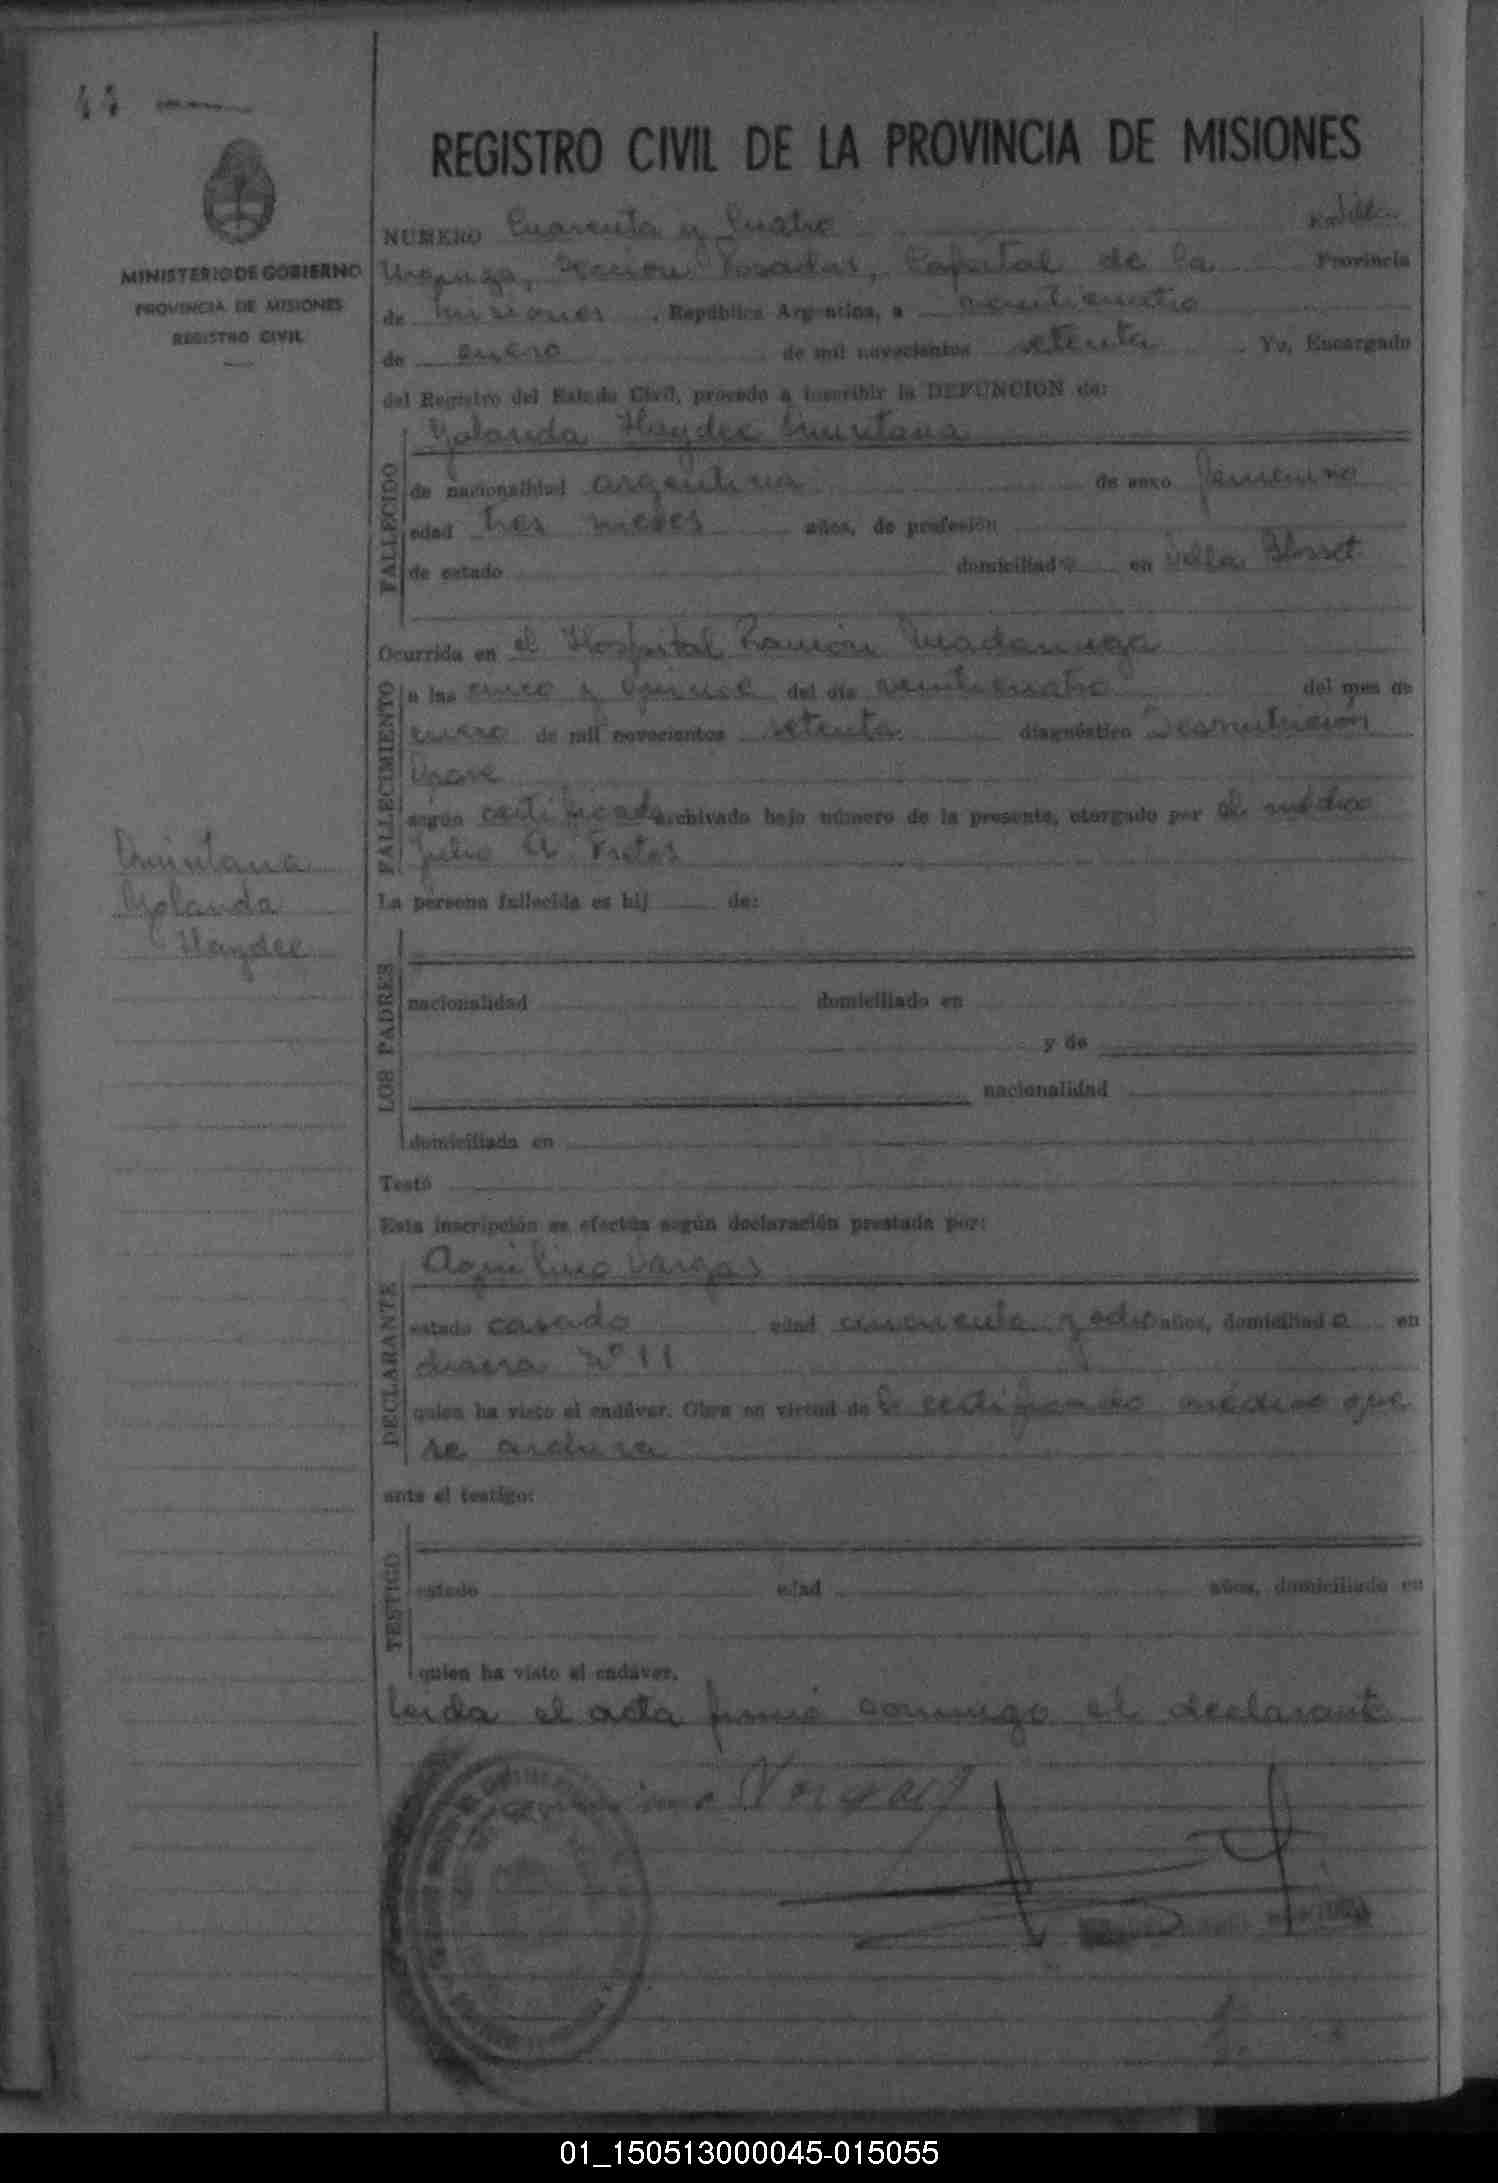 44
REGISTRO CIVIL DE LA PROVINCIA DE MISIONES
MINISTERIO DE GOBIERNO
PROVINCIA DE MISIONES
REGISTRO CIVIL
NUMERO Cuarenta y Cuatro
Sección Posadas, Capital de la Provincia
de Misiones, República Argentina, a veinticuatro
de enero de mil novecientos setenta. Yo, Encargado
del Registro del Estado Civil, procedo a inscribir la DEFUNCION de:
FALLECIDO
Yolanda Haydee Quintana
de nacionalidad argentina de sexo femenino
edad tres meses años, de profesión
de estado domiciliada en Villa Blosset
Ocurrida en el Hospital Ramón Madariaga
FALLECIMIENTO
a las cinco y quince del día veinticuatro del mes de
enero de mil novecientos setenta diagnóstico Desnutrición
Grave
según certificado archivado bajo número de la presente, otorgado por el médico
Julio A. Fretes
Quintana
Yolanda
Haydee
La persona fallecida es hij de:
LOS PADRES
nacionalidad domiciliado en
y de
nacionalidad
domiciliada en
Testó
Esta inscripción se efectúa según declaración prestada por:
DECLARANTE
Aquilino Vargas
estado casado edad cincuenta y ocho años, domiciliado en
chacra Nº 11
quien ha visto el cadáver. Obra en virtud de el certificado médico que
se archiva
ante el testigo:
TESTIGO
estado edad años, domiciliado en
quien ha visto el cadáver.
Leida el acta firmó conmigo el declarante
Vargas
01_150513000045-015055